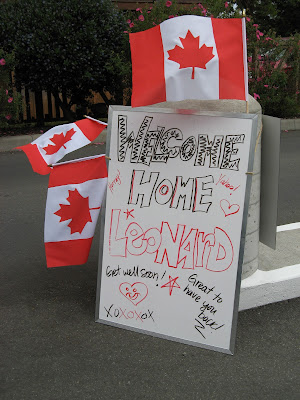 Welcome
Home
Leonard
Get well soon!
Great to
have you
back!
XoXoXoX